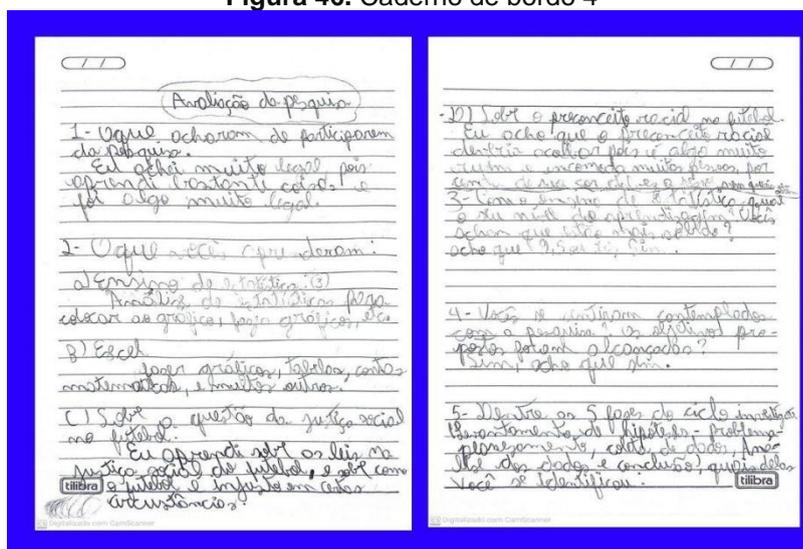 Figura 46. Caderno de bordo 4
Avaliação da pesquisa
1- Oque acharam de participarem
da pesquisa.
Eu achei muito legal pois
aprendi bastante coisa e
foi algo muito legal.
2- Oque vocês aprenderam:
a) Ensino de estatística: (3)
Análise de estatísticas para
colocar ao gráfico, fazer gráficos, etc
B) Escel
fazer gráficos, tabelas, contas
matematicas, e muitos outros.
C) Sobre a questão da justiça social
no futebol.
Eu aprendi sobre as leis na
justiça social do futebol, e sobre como
o futebol e injusto em certas
circustâncias.
tilibra
Digitalizado com CamScanner
D) Sobre o preconceito racial no futebol.
Eu acho que o preconceito racial
deveria acabar pois é algo muito
ruim e incomoda muitas pessoas, por
de sua cor
3- Com o ensino de Estatística, qual
o seu nível de aprendizagem? Vocês
acham que estão mais
acho que 9,5 sim.
4- Vocês se sentiram contemplados
com a pesquisa? os objetivos pro-
postos foram alcançados?
Sim, acho que sim.
5- Dentre as 5 fases do ciclo investigati
Levantamento de hipótese - problema
planejamento, coleta de dados, Aná-
lise dos dados e conclusão, quais delas
você se identificou:
tilibra
Digitalizado com CamScanner